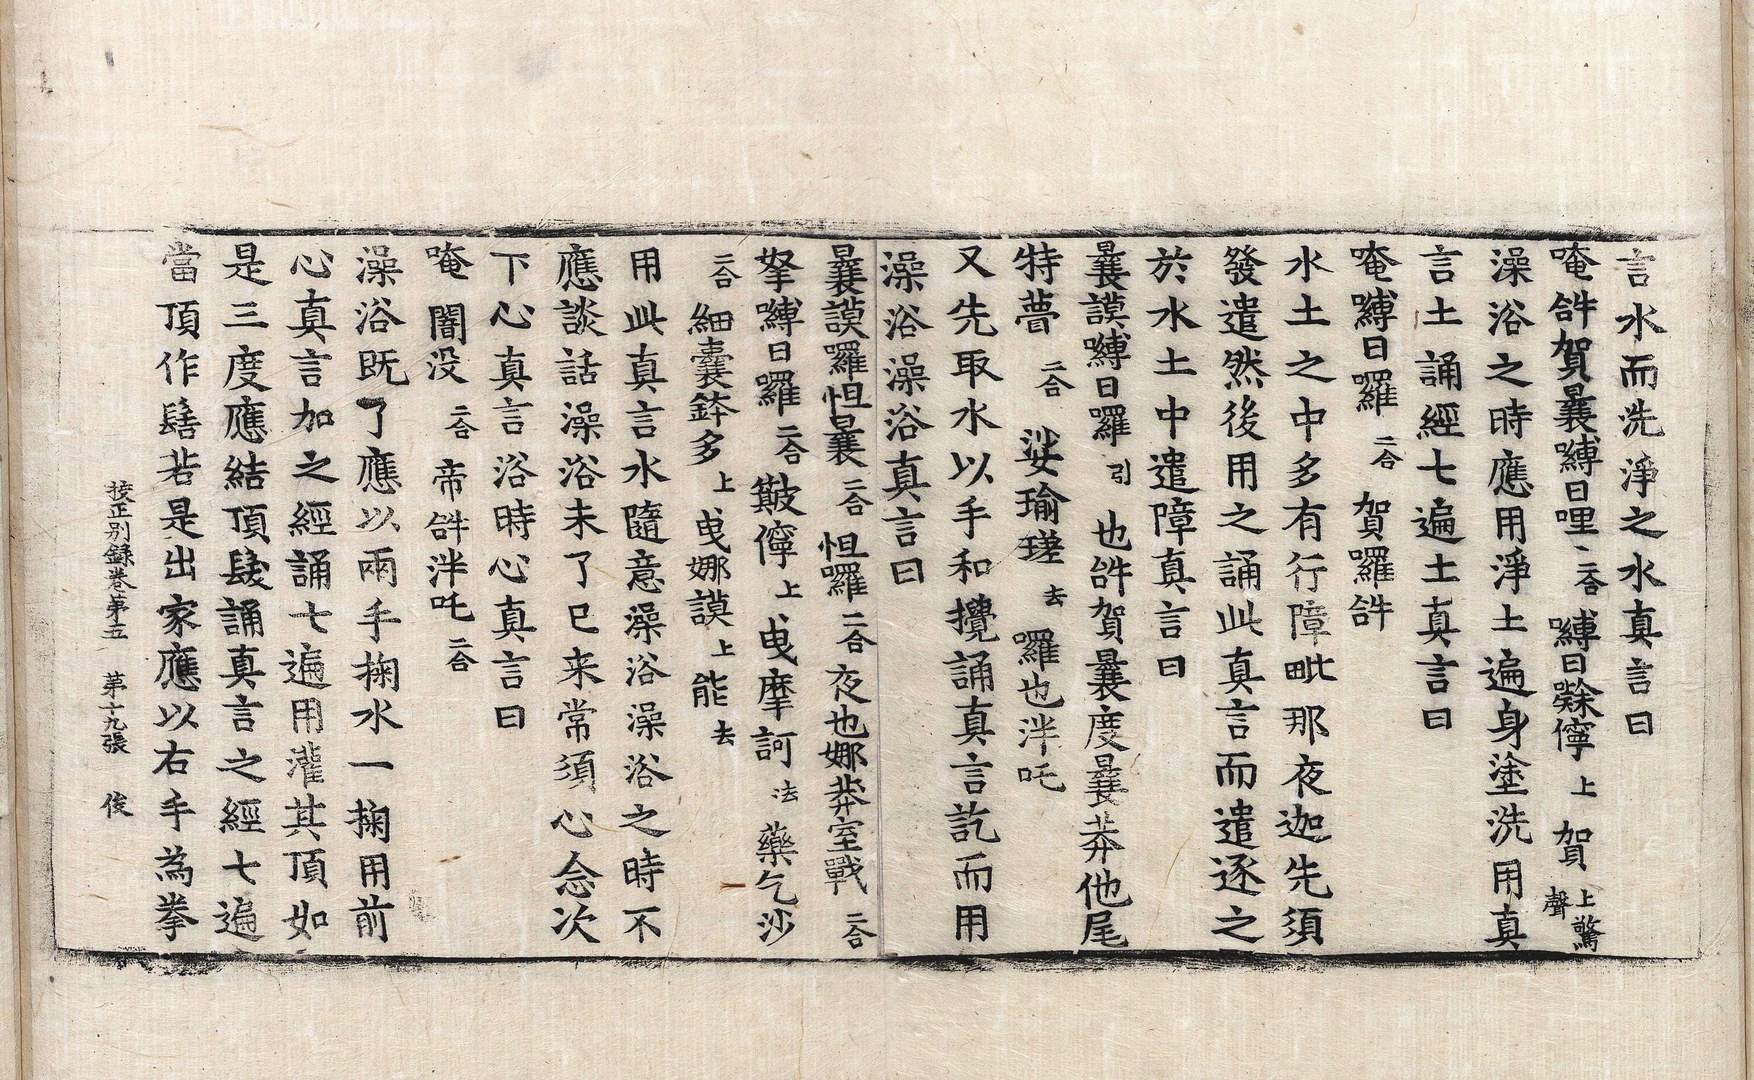 言水而洗淨之水真言曰
唵𤙖賀曩嚩日哩二合嚩日𪘨儜上賀上聲驚
澡浴之時應用淨土遍身塗洗用真
言土誦經七遍土真言曰
唵嚩日囉二合賀囉𤙖
水土之中多有行障毗那夜迦先須
發遣然後用之誦此真言而遣逐之
於水土中遣障真言曰
曩謨嚩日囉引也𤙖賀曩度曩莽他尾
特蕚二合娑瑜瑳去囉也泮吒
又先取水以手和攪誦真言訖而用
澡浴澡浴真言曰
曩謨囉怛曩二合怛囉二合夜也娜莽室戰二合
拏嚩日囉二合皺儜上曳摩訶法藥乞沙
二合細曩鉢多上曳娜謨上能去
用此真言水隨意澡浴澡浴之時不
應談話澡浴未了已来常須心念次
下心真言浴時心真言曰
唵闇没二合帝𤙖泮吒二合
澡浴既了應以兩手掬水一掬用前
心真言加之經誦七遍用灌其頂如
是三度應結頂髮誦真言之經七遍
當頂作髻若是出家應以右手為拳
挍正别録卷第五　第十九張　俊